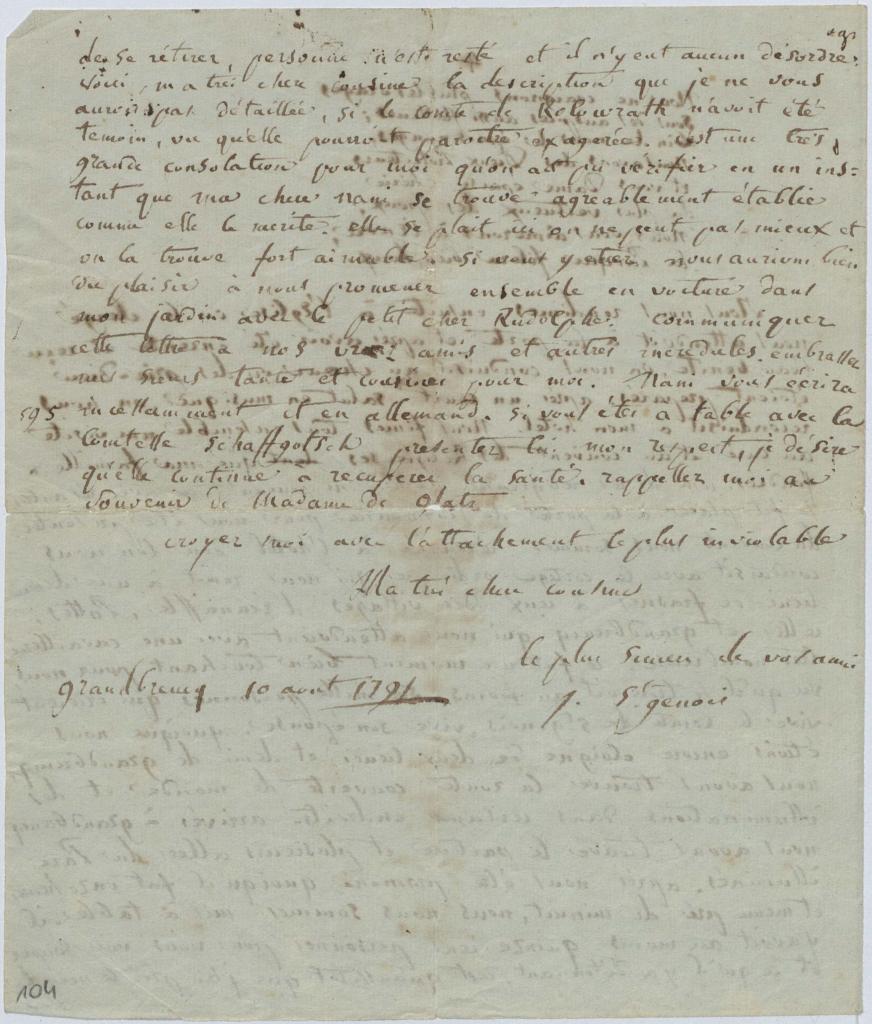 de se rétirer, personne n'est resté et il n'y eut aucun désordre.
Voici, ma tres chere cousine la description que je ne vous
aurois pas détaillée, si le comte de Kolowrath n'avoit été
temoin, vu qu'elle pourroit paroitre éxagerée. c'est une très
grande consolation pour moi qu'on ait pu vérifier en un ins=
tant que ma chere nani se trouve agreablement établie
comme elle le merite. elle se plait ici on ne peut pas mieux et
on la trouve fort aimable. si vous y etiez nous aurions bien
du plaisir à nous promener ensemble en voiture dans
mon jardin avec le petit cher Rudolphe. communiquez
cette lettre à nos vrais amis et autres incrédules. embrassez
mes sœurs tante et cousines pour moi. Nani vous écrira
595 incessamment et en allemand. si vous étes a table avec la
Comtesse Schaffgotsch presentez lui mon respect, je désire
qu'elle continue à recuperer la santé. rappellez moi au
souvenir de Madame de Glatz
croyez moi avec l'attachement le plus inviolable
Ma trés chere cousine
le plus sincere de vos amis
grandbreucq 10 aout 1791
j. St genois
104